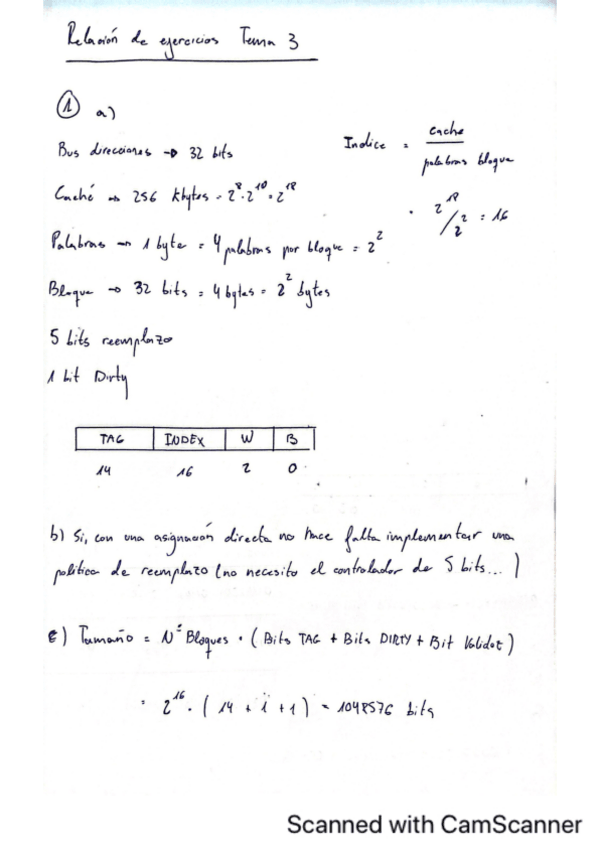 Relación de ejercicios Tema 3
① a)
Bus direcciones → 32 bits
Indice = caché / palabras bloque
Caché → 256 Kbytes = 2^8 · 2^10 = 2^18
= 2^18 / 2^2 = 16
Palabras → 1 byte = 4 palabras por bloque = 2^2
Bloque → 32 bits = 4 bytes = 2^2 bytes
5 bits reemplazo
1 bit Dirty
TAG INDEX W B
14 16 2 0
b) Si, con una asignación directa no hace falta implementar una
politica de reemplazo (no necesito el controlador de 5 bits... )
c) Tamaño = Nº Bloques · ( Bits TAG + Bits DIRTY + Bit Validot )
= 2^16 · ( 14 + 1 + 1 ) = 1048576 bits
Scanned with CamScanner